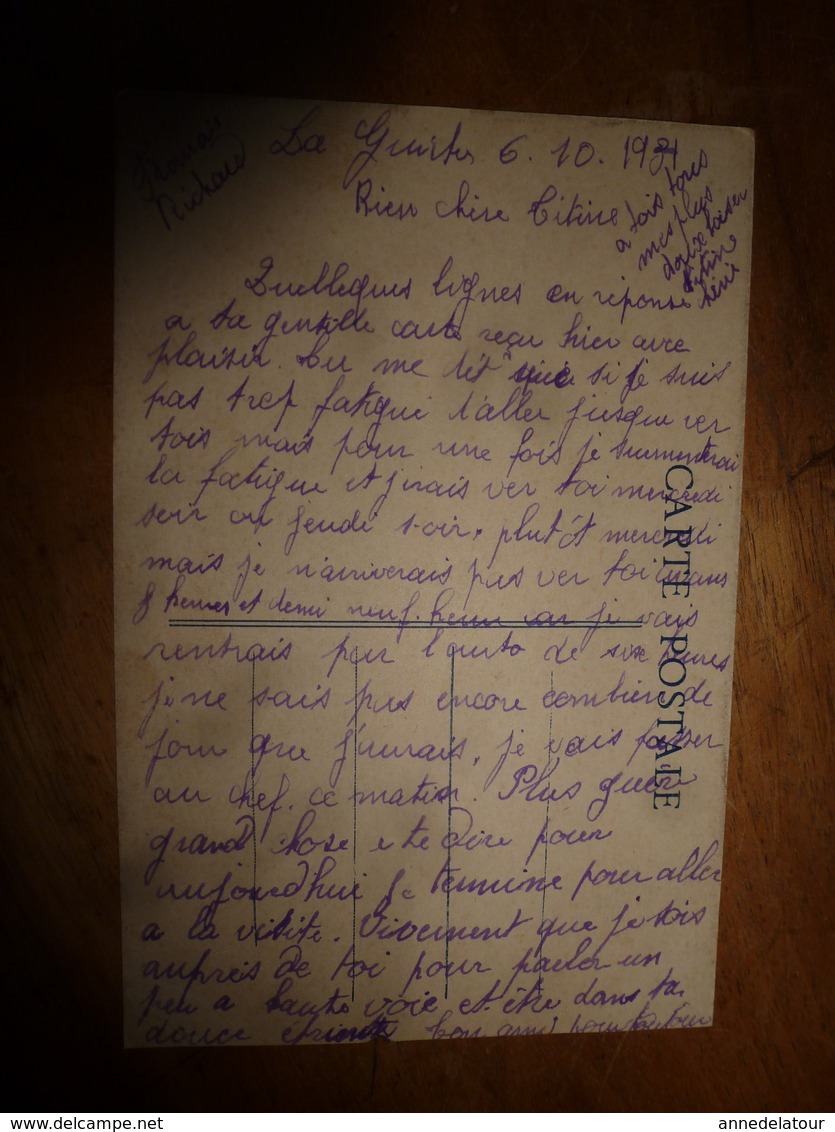 Richard
La 6.10.1931
Bien chère Titine
a tois tous
mes plus
doux baiser
Titine
chérie
Quelleques lignes en réponse
a ta gentille carte reçu hier avec
plaisir. Tu me dit que si je suis
pas trop fatigué d'aller jusque ver
tois mais pour une fois je summonterai
la fatigue et j'irais ver toi mercredi
soir ou jeudi soir, plutôt mercredi
mais je n'arriverais pas ver toi avans
8 heures et demi neuf heure car je vais
rentrais par l'auto de six heures
je ne sais pas encore combien de
jour que j'aurais, je vais passer
au chef. ce matin. Plus guere
grand chose a te dire pour
aujourdhui je termine pour aller
a la visite. Vivement que je sois
auprès de toi pour parler un
peu a haute voie et être dans ta
douce étreinte bon ami pour toutou
CARTE POSTALE
annedelatour